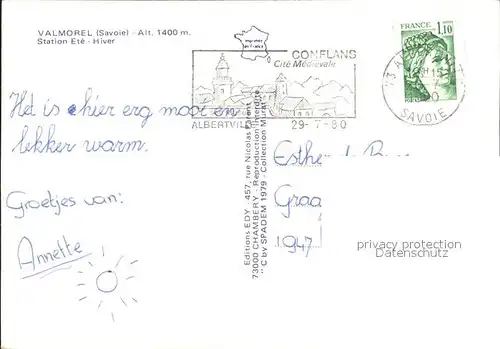 VALMOREL (Savoie) - Alt. 1400 m.
Station Eté - Hiver
CONFLANS
Cité Médiévale
ALBERTVILLE
29-7-80
FRANCE
1,10
SAVOIE
Het is hier erg mooi en
lekker warm.
Groetjes van:
Annette
Editions EDY - 457, rue Nicolas Parent
73000 CHAMBERY - Reproduction Interdite
"C by SPADEM 1979 - Collection Murat"
Esthe
Graa
1947
privacy protection
Datenschutz